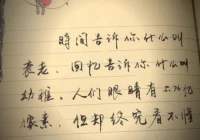 时间告诉你什么叫
衰老，回忆告诉你什么叫
幼稚。人们眼睛有5.76亿
像素，但却终究看不懂